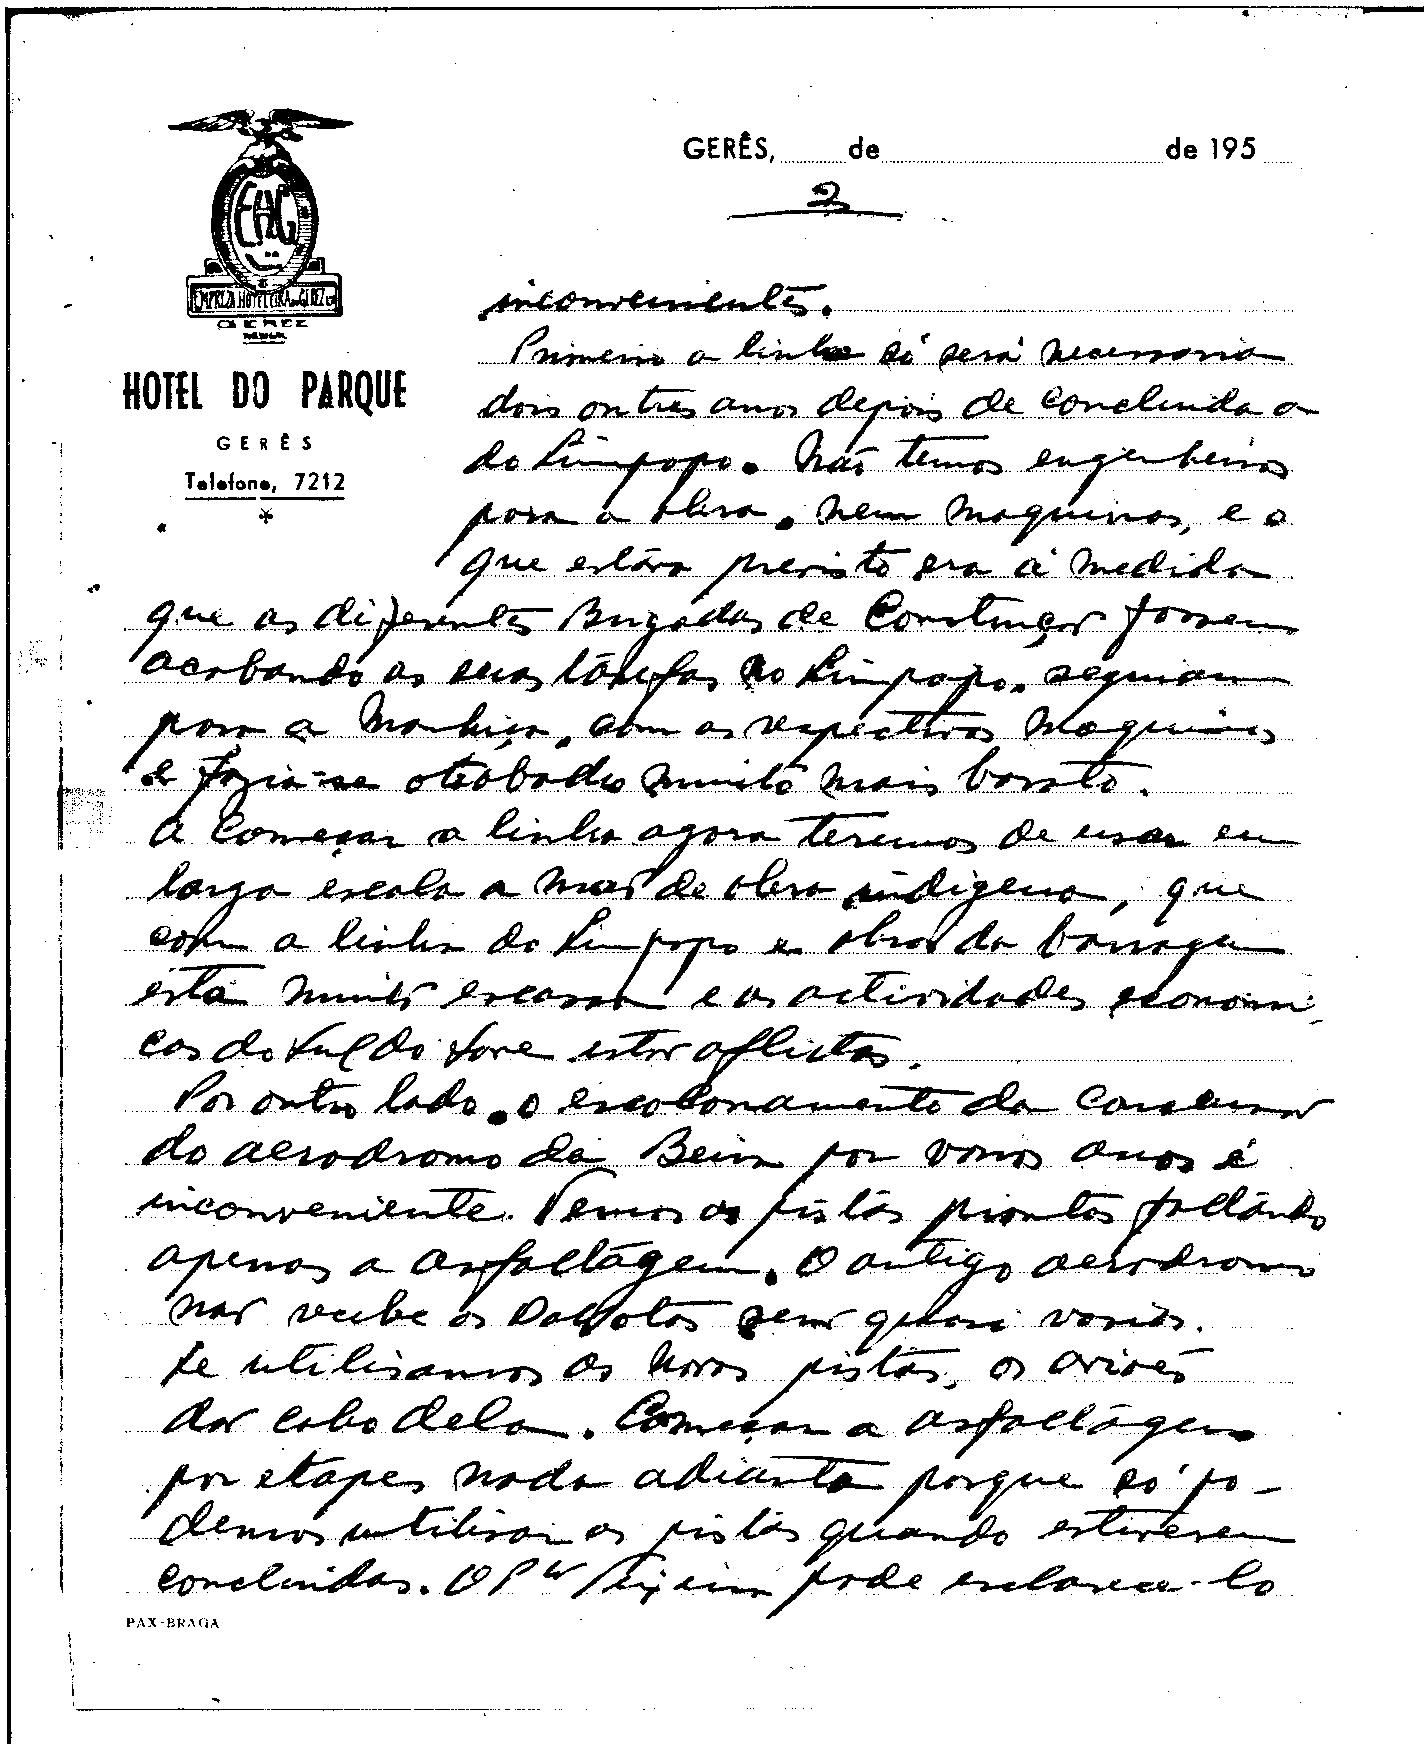 GERÊS, de de 195
2
EHG
EMPREZA HOTELEIRA DO GEREZ
GEREZ
HOTEL DO PARQUE
GERÊS
Telefone, 7212
inconvenientes.
Primeiro a linha só será necessaria
dois ou tres anos depois de concluida a
do Limpopo. Não temos engenheiros
para a obra, nem maquinas, e o
que estava previsto era á medida
que as diferentes Brigadas de Construção fossem
acabando as suas tarefas no Limpopo, seguiam
para a Moamba, com as respectivas maquinas
e fazia-se o trabalho muito mais barato.
A começar a linha agora teremos de usar em
larga escala a mão de obra indigena, que
com a linha do Limpopo e obras da barragem
está muito escassa e as actividades economi-
cas do Sul do Save estão aflictas.
Por outro lado, o escalonamento da
do aerodromo da Beira por varios anos é
inconveniente. Temos as pistas prontas faltando
apenas a asfaltagem. O antigo aerodromo
não recebe os Dakotas sem quasi vasios.
Se utilisamos as novas pistas, os aviões
dão cabo dela. Começar a asfaltagem
por etapes nada adianta porque só po-
demos utilisar as pistas quando estiverem
concluidas. O pode esclarece-lo
PAX-BRAGA